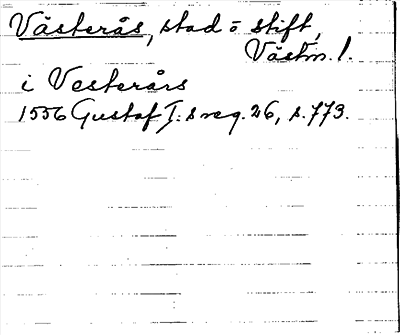 Västerås, stad o stift,
Västm. l.
i Vesterårs
1556 Gustaf I:s reg. 26, s. 773.